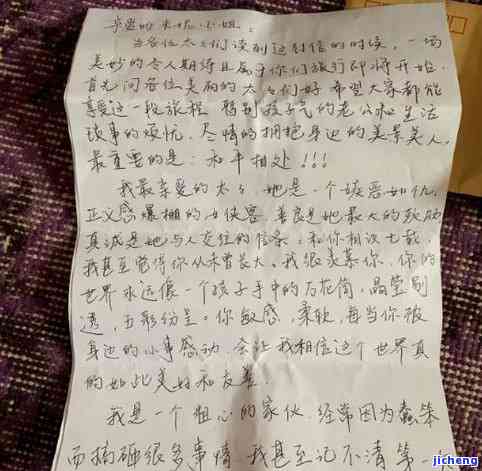 当各位太太们读到这封信的时候，一场
美妙的令人期待且属于你们旅行即将开始，
首先问各位美丽的太太们好 希望大家都能
享受这一段旅程 暂别孩子气的老公和生活
琐事的烦忧，尽情的拥抱身边的美景美人，
最重要的是：和平相处!!!
我最亲爱的太太，她是一个嫉恶如仇，
正义感爆棚的女侠客 善良是她最大的软肋
真诚是她与人交往的信条，和你相识七载，
我甚至觉得你从未曾长大，我很羡慕你，你的
世界永远像一个孩子手中的万花筒，晶莹剔
透，五彩纷呈。你敏感，柔软，每当你被
身边的小事感动 会让我相信这个世界真
的如此美好和友善!
我是一个粗心的家伙，经常因为蠢笨
而搞砸很多事情 我甚至记不清第一
jicheng